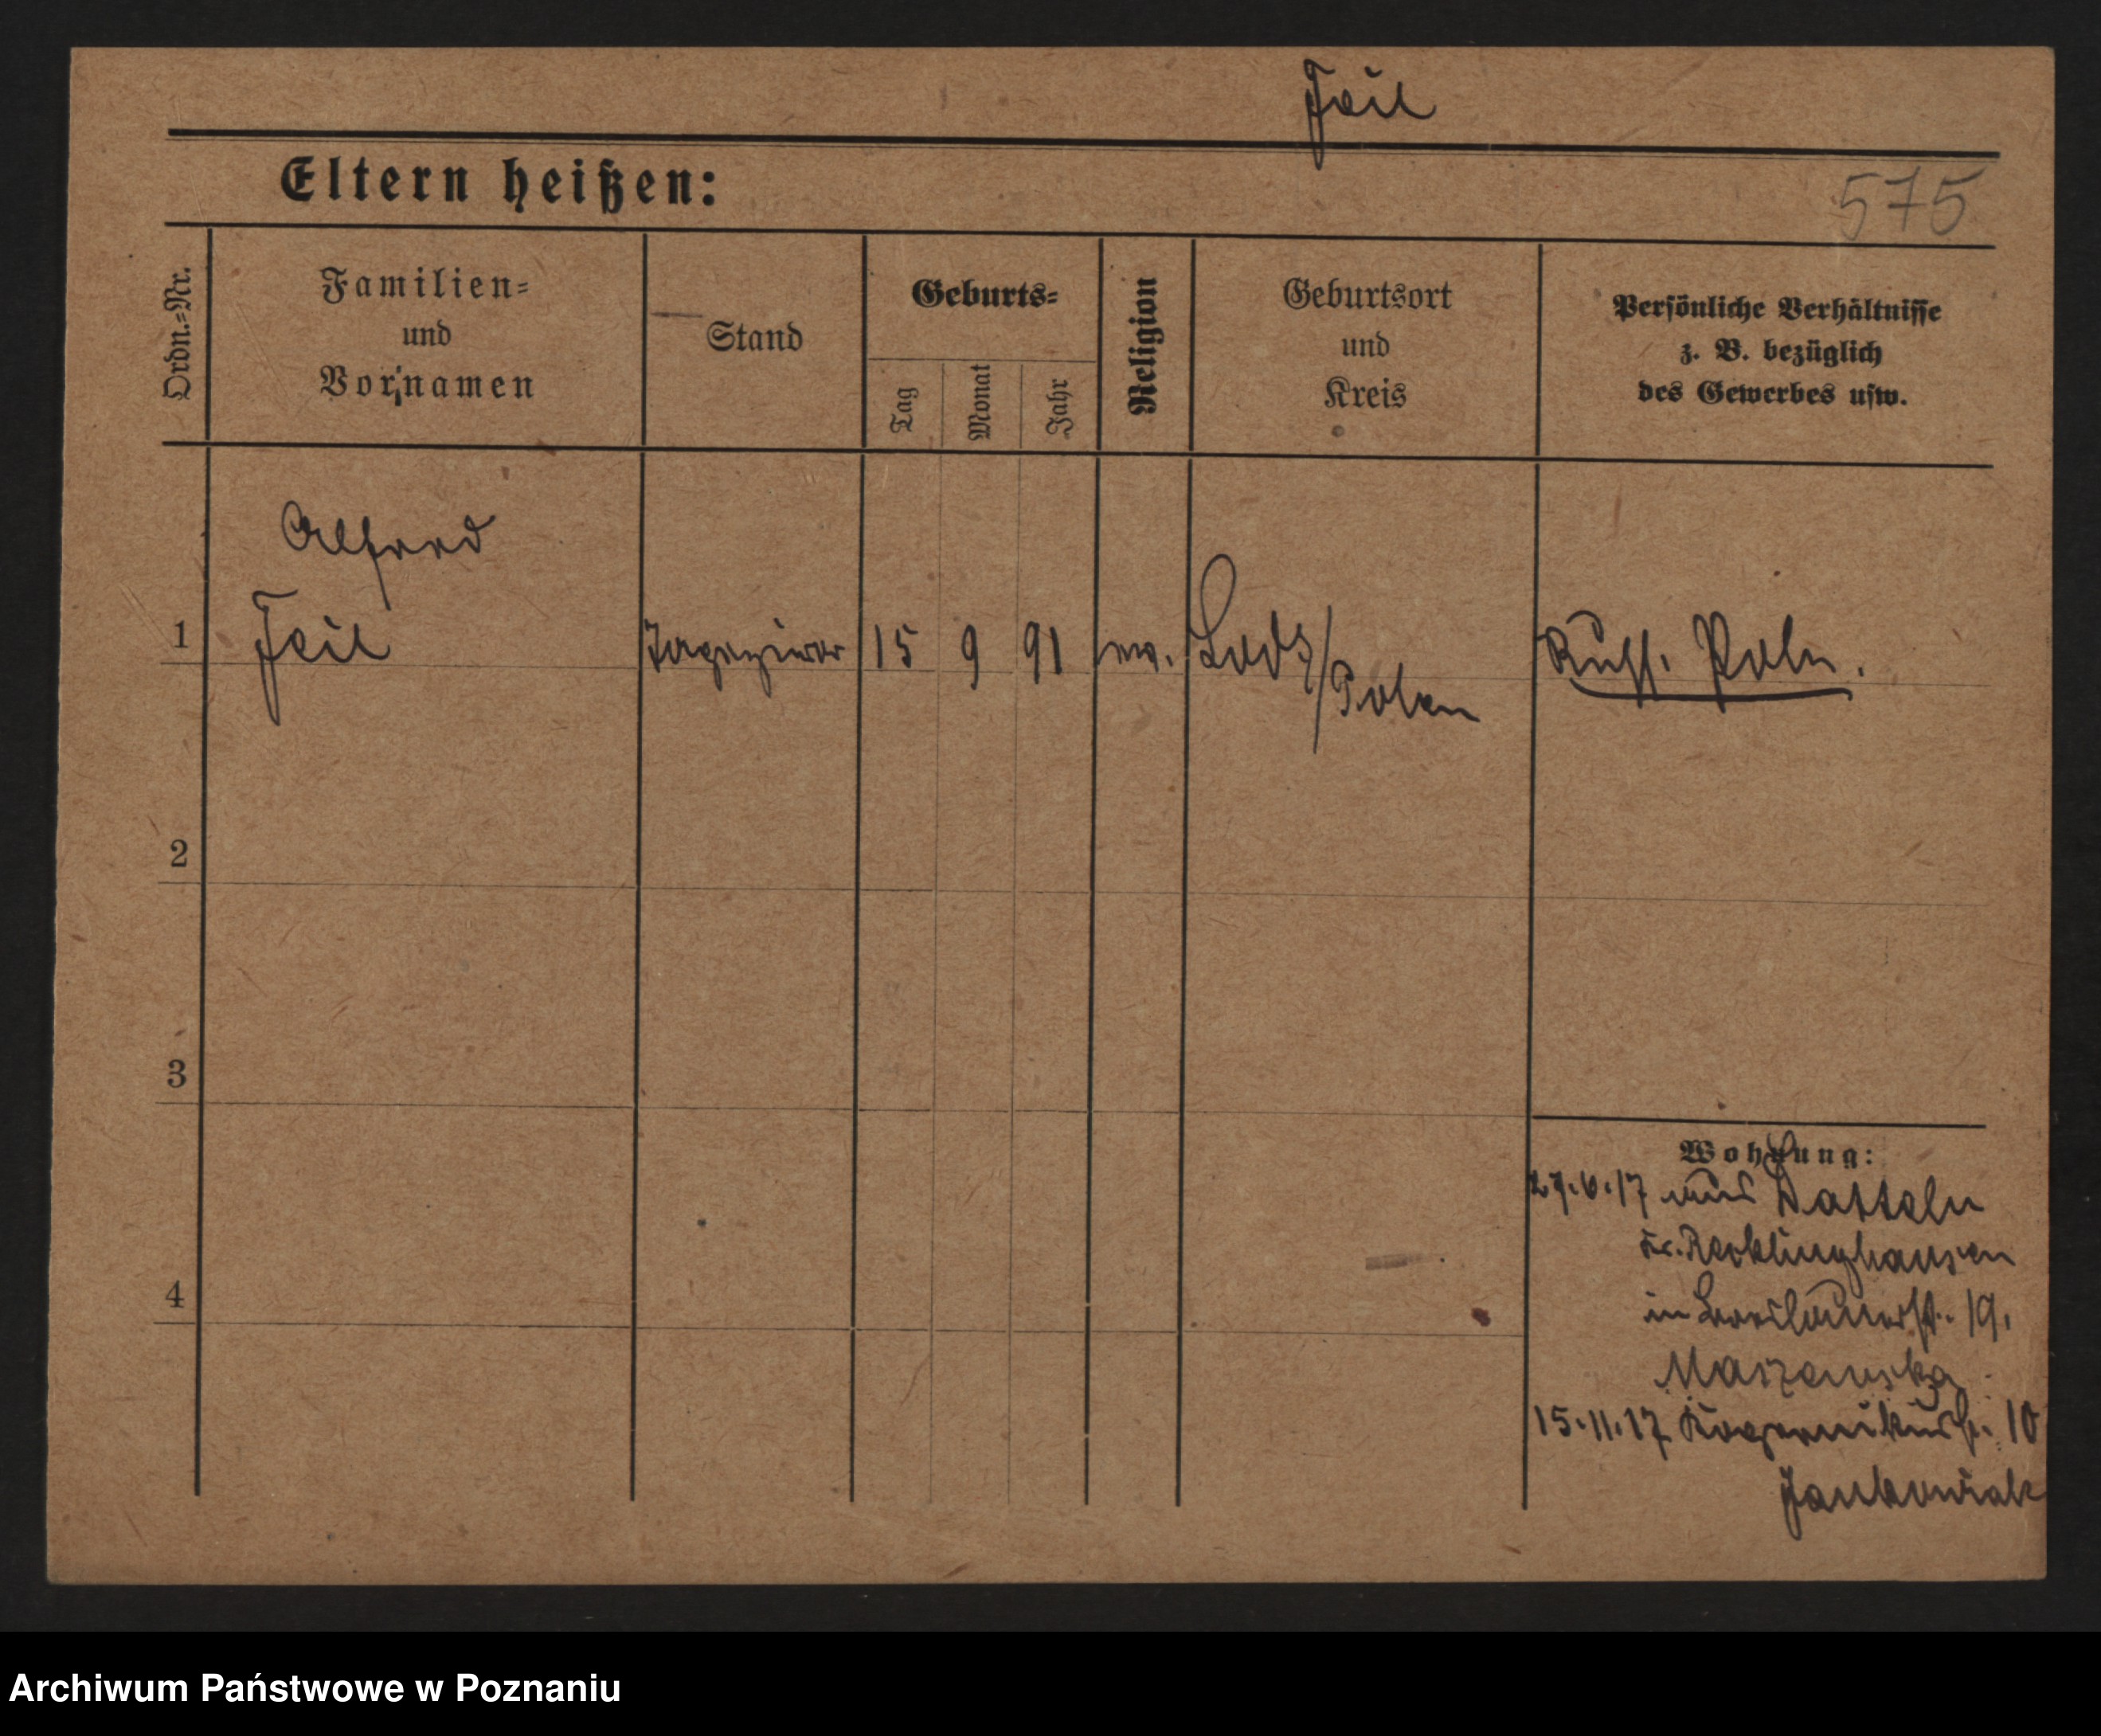 Feil
Eltern heißen:
575
Ordn.-Nr.
Familien-
und
Vornamen
Stand
Geburts-
Tag
Monat
Jahr
Religion
Geburtsort
und
Kreis
Persönliche Verhältnisse
z. B. bezüglich
des Gewerbes usw.
Alfred
1 Feil Tapezierer 15 9 91 ev. Lods/
Polen
Russ. Pole.
2
3
4
Wohnung:
27.6.17 aus Datteln
Kr. Recklinghausen
in Breslauerst. 19.
15.11.17 Kopernikusst. 10
Jankowiak
Archiwum Państwowe w Poznaniu